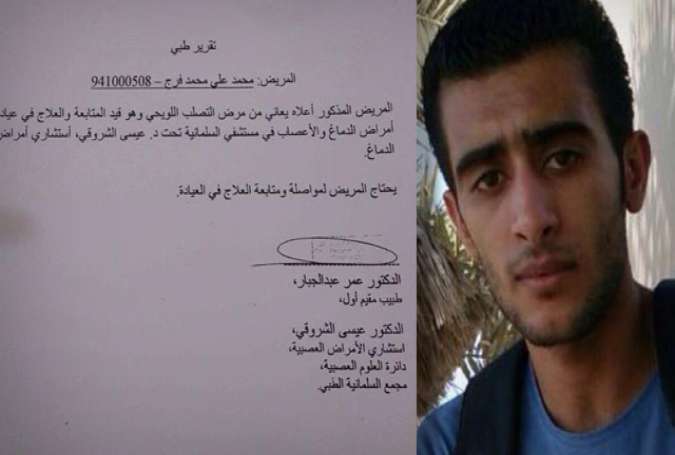 تقرير طبي
المريض: محمد علي محمد فرج – 941000508
المريض المذكور أعلاه يعاني من مرض التصلب اللويحي وهو قيد المتابعة والعلاج في عيادة
أمراض الدماغ والأعصاب في مستشفي السلمانية تحت د. عيسى الشروقي، أستشاري أمراض
الدماغ.
يحتاج المريض لمواصلة ومتابعة العلاج في العيادة.
الدكتور عمر عبدالجبار،
طبيب مقيم أول،
الدكتور عيسى الشروقي،
استشاري الأمراض العصبية،
دائرة العلوم العصبية،
مجمع السلمانية الطبي.